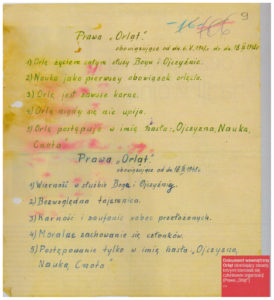 9
Prawa „Orląt".
obowiązujące od dn. 6. V. 1942r. do dn. 18
1) Orlę życiem całym służy Bogu i Ojczyźnie.
2) Nauka jako pierwszy obowiązek orlęcia.
3) Orlę jest zawsze karne.
4) Orlę nigdy się nie upija.
5) Orlę postępuje w imię hasła: „Ojczyzna, Nauka,
Cnota"
Prawa „Orląt".
obowiązujące od dn. 18
1) Wierność w służbie Boga i Ojczyzny.
2) Bezwzględna tajemnica.
3) Karność i zaufanie wobec przełożonych.
4) Moralne zachowanie się członków.
5) Postępowanie tylko w imię hasła „Ojczyzna,
Nauka, Cnota"
Dokument wewnętrzny
Orląt określający zasady,
którymi kierowali się
członkowie organizacji
(Prawa „Orląt")